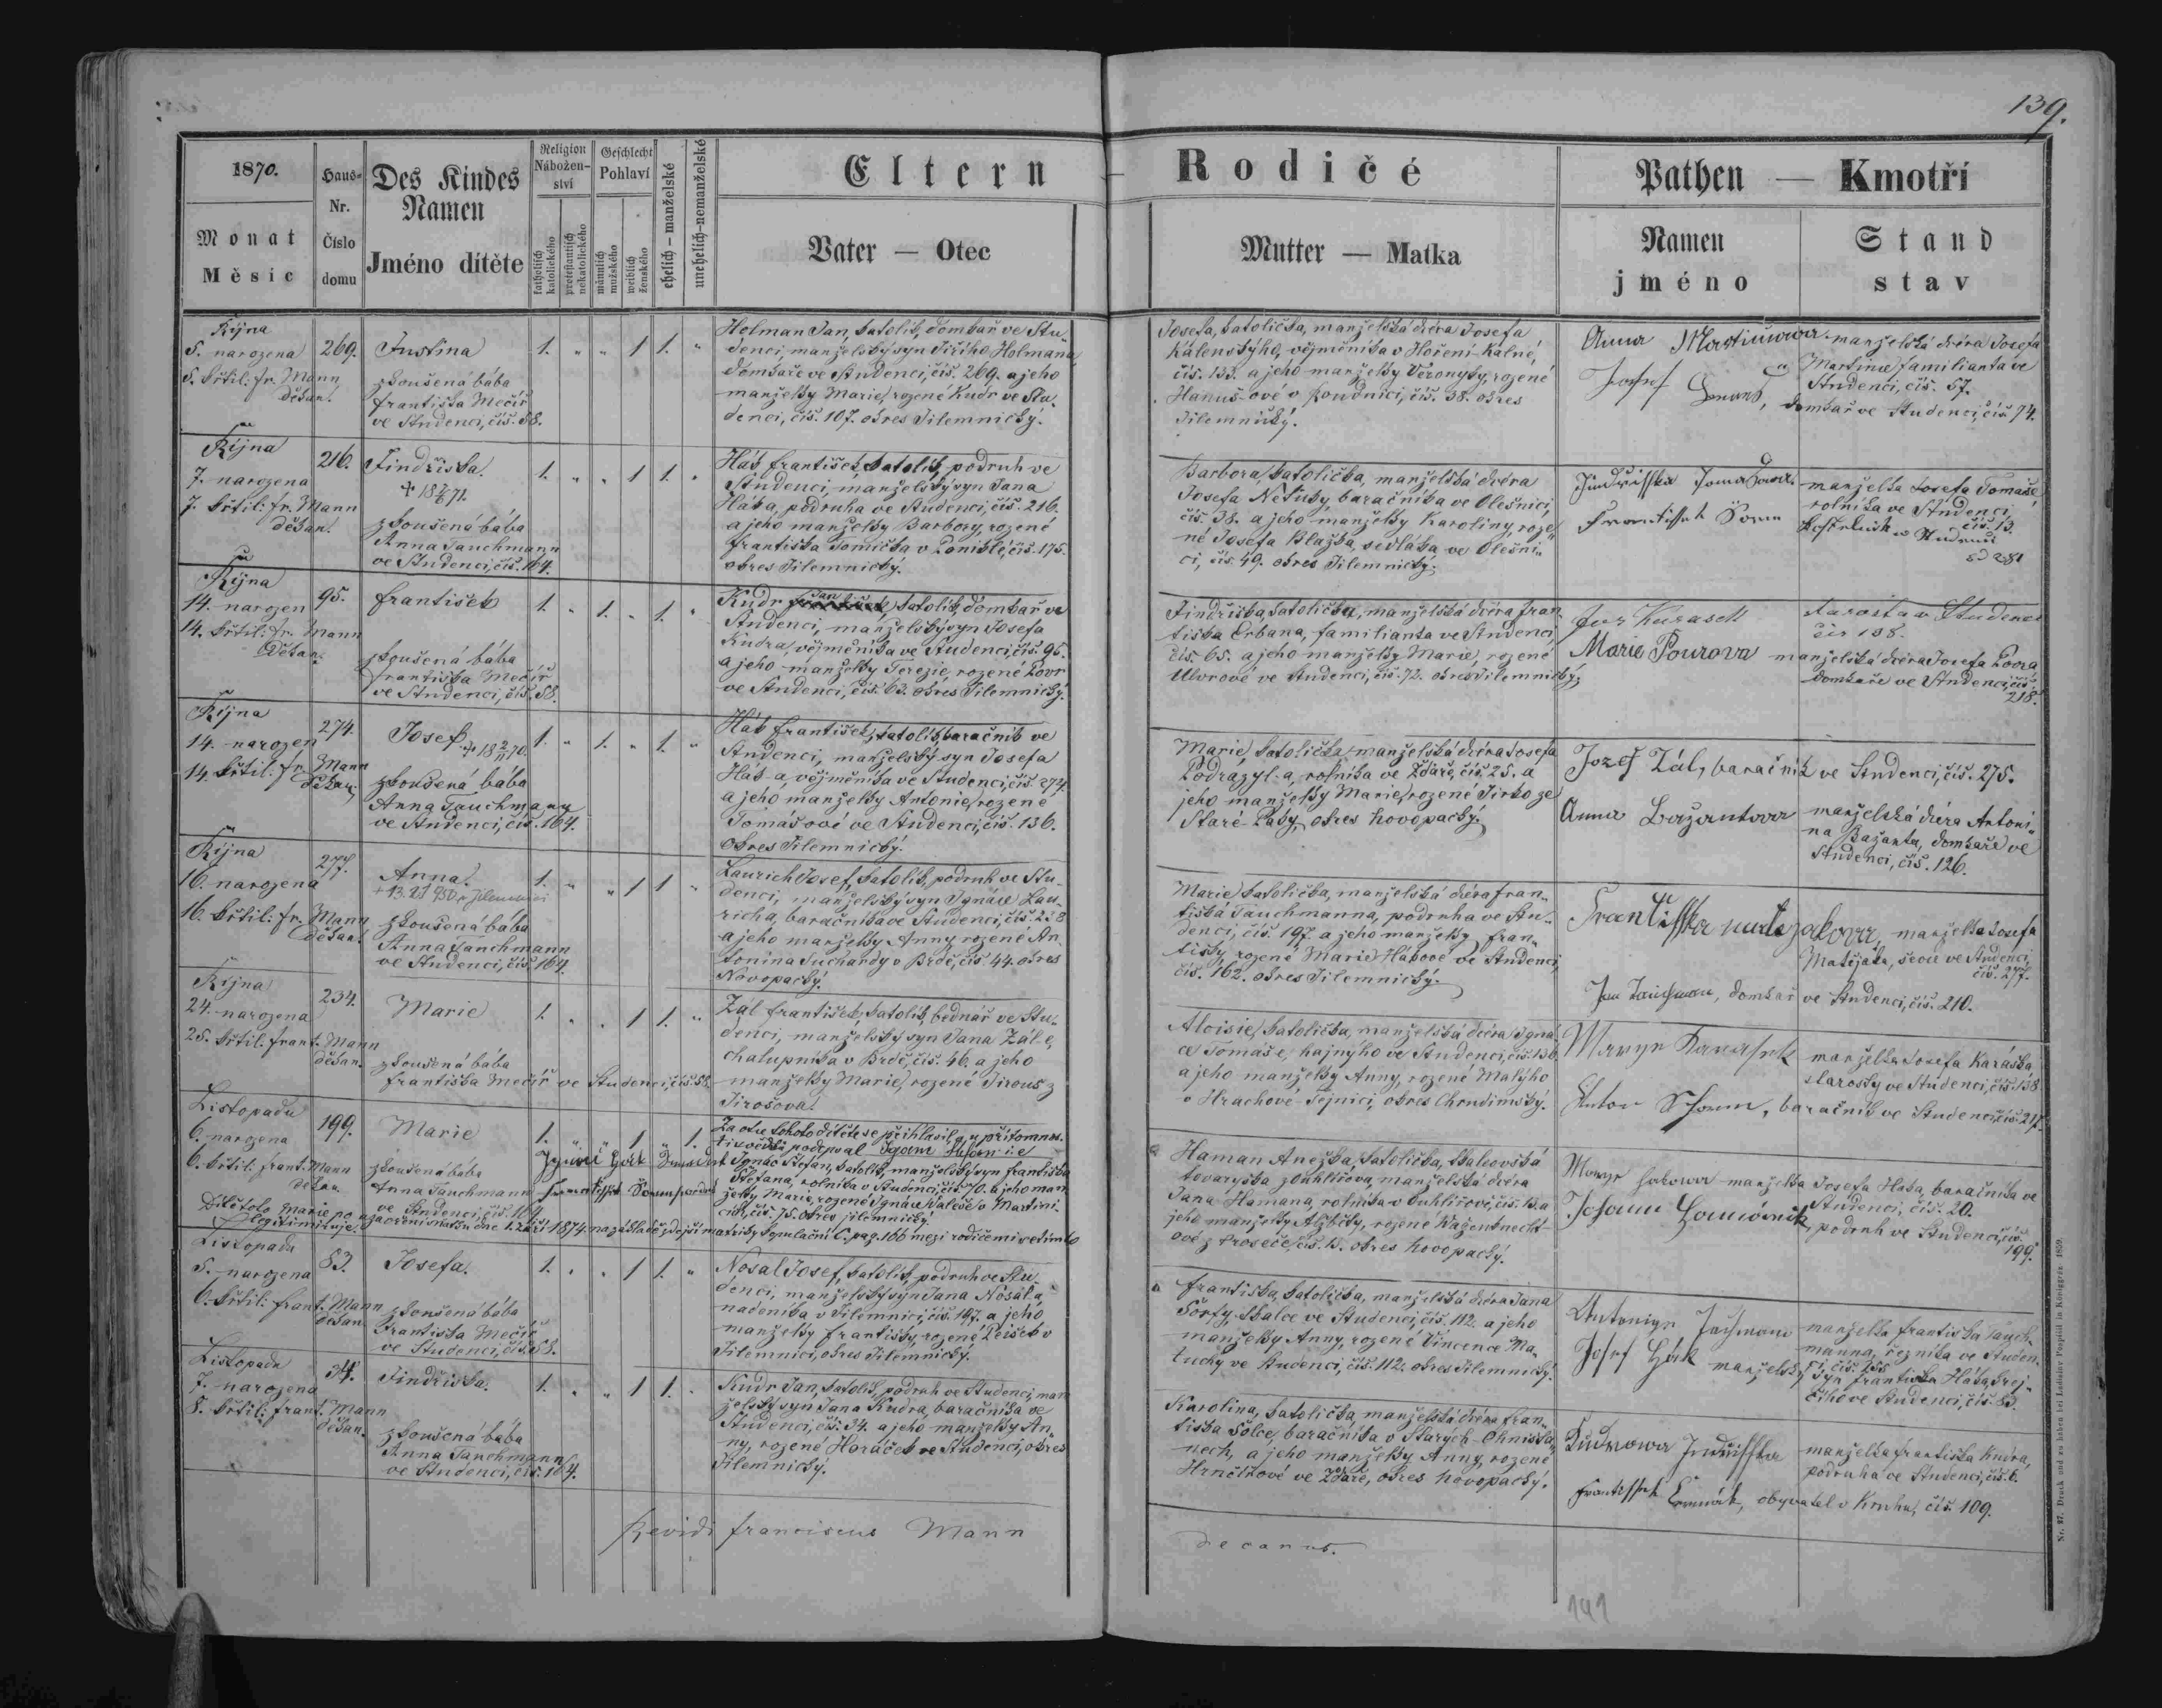 139.
1870.
Monat
Měsíc
Haus-
Nr.
Číslo
domu
Des Kindes
Namen
Jméno dítěte
Religion
Nábožen-
ství
katholisch
katolického
protestantisch
nekatolického
Geschlecht
Pohlaví
männlich
mužského
weiblich
ženského
ehelich – manželské
unehelich–nemanželské
Eltern — Rodičé
Vater — Otec
Mutter — Matka
Pathen — Kmotři
Namen
jméno
Stand
stav
Října
5. narozena
5. křtil: fr. Mann
děkan.
269.
Justina
zkoušená bába
františka Mečíř
ve Studenci, čís. 58.
1. " " 1 1. "
Holman Jan, katolík, domkař ve Stu-
denci, manželský syn Jiřího Holmana
domkaře ve Studenci, čís. 269. a jeho
manželky Marie, rozené Kudr ve Stu-
denci, čís. 107. okres Jilemnický.
Josefa, katolička, manželská dcera Josefa
Kálenskýho, vejměníka v Hoření-Kalné,
čís. 133. a jeho manželky Veronyky, rozené
Hanuš-ové v Roudnici, čís. 38. okres
Jilemnický.
Anna Martinowa manželská dcera Josefa
Martince familianta ve
Studenci, čís. 57.
Josef
domkař ve Studenci, čís. 74.
Října
7. narozena
7. křtil: fr. Mann
děkan.
216.
Jindřiška.
zkoušená bába
Anna Tauchmann
ve Studenci, čís. 164.
1. " " 1 1. "
Hák františek, katolík, podruh ve
Studenci, manželský syn Jana
Háka, podruha ve Studenci, čís. 216.
a jeho manželky Barbory, rozené
františka Tomíčka v Ponikle, čís. 175.
okres Jilemnický.
Barbora, katolička, manželská dcera
Josefa Netuky, baračníka ve Olešnici,
čís. 38. a jeho manželky Karolíny, roze-
né Josefa Blažka, sedláka ve Olešni-
ci, čís. 49. okres Jilemnický.
manželka Josefa Tomáše,
rolníka ve Studenci
čís. 13.
Frantissek Sorm
Října
14. narozen
14. křtil: fr. Mann
děkan.
95.
františek
zkoušená bába
františka Mečíř
ve Studenci, čís. 58.
1. " 1. " 1. "
Kudr Jan, katolík, domkař ve
Studenci, manželský syn Josefa
Kudra, vejměníka ve Studenci, čís. 95.
a jeho manželky Terezie, rozené Povr
ve Studenci, čís. 63. okres Jilemnický.
Jindřiška, katolička, manželská dcera fran-
tiška Erbana, familianta ve Studenci,
čís. 65. a jeho manželky Marie, rozené
Ulvrové ve Studenci, čís. 72. okres Jilemnický.
starosta v Studenci
čís 138.
Marie Pourova manželská dcera Josefa Povra,
domkaře ve Studenci, čís.
218.
Října
14. narozen
14. křtil: fr. Mann
děkan.
274.
Josef.
zkoušená bába
Anna Tauchmann
ve Studenci, čís. 164.
1. " 1. " 1. "
Hák františek, katolík, baračník ve
Studenci, manželský syn Josefa
Hák-a, vejměníka ve Studenci, čís. 274.
a jeho manželky Antonie, rozené
Tomášové ve Studenci, čís. 136.
okres Jilemnický.
Marie, katolička, manželská dcera Josefa
Podrazyl-a, rolníka ve Ždáře, čís. 25. a
jeho manželky Marie, rozené Jirko ze
Staré-Paky, okres novopacký.
Jozef Zál, baračník ve Studenci, čís. 275.
Anna Bazantova manželská dcera Antoní-
na Bažanta, domkaře ve
Studenci, čís. 126.
Října
16. narozena
16. křtil: fr. Mann
děkan.
277.
Anna.
zkoušená bába
Anna Tauchmann
ve Studenci, čís. 164.
1. " " 1 1 "
Laurich Josef, katolík, podruh ve Stu-
denci, manželský syn Ignáce Lau-
richa, baračníka ve Studenci, čís. 238
a jeho manželky Anny rozené An-
tonína Suchardy v Brdě, čís 44. okres
Novopacký.
Marie, katolička, manželská dcera fran-
tiška Tauchmanna, podruha ve Stu-
denci, čís. 197. a jeho manželky fran-
tišky, rozené Marie Hákové ve Studenci,
čís. 162. okres Jilemnický.
manželka Josefa
Matějáka, ševce ve Studenci,
čís. 277.
domkař ve Studenci, čís. 210.
Října
24. narozena
25. křtil: frant. Mann
děkan.
234.
Marie
zkoušená bába
františka Mečíř ve Studenci, čís. 58.
1. " " 1 1. "
Zál františek, katolík, bednář ve Stu-
denci, manželský syn Jana Zál-e,
chalupníka v Brdě, čís. 46. a jeho
manželky Marie, rozené Jirouš z
Jirošova.
Aloisie, katolička, manželská dcera Igná-
ce Tomáš-e, hajnýho ve Studenci, čís. 136
a jeho manželky Anny, rozené Malýho
v Hrachové-Tejnici, okres Chrudimský.
manželka Josefa Karáska
starosty ve Studenci, čís. 138
Anton Schorm, baračník ve Studenci, čís. 217.
Listopadu
6. narozena
6. křtil: frant. Mann
děkan.
199.
Marie
zkoušená bába
Anna Tauchmann
ve Studenci, čís. 164.
1. " " 1 " 1.
Za otce tohoto dítěte se přihlásil a u přítomnos-
ti svědků podepsal
Ignác Štefan, katolík, manželský syn františka
Štefana, rolníka v Studenci, čís. 70. a jeho man-
želky Marie, rozené Ignáce Valeše v Martini-
cích, čís. 75. okres jilemnický.
Haman Anežka, katolička,
tovaryška z Ouhlířova, manželská dcera
Jana Hamana, rolníka v Ouhlířově, čís. 13. a
jeho manželky Alžběty, rozené Wagenknecht-
ové z Proseče, čís. 15. okres novopacký.
manželka Josefa Háka, baračníka ve
Studenci, čís. 20.
podruh ve Studenci, čís.
199.
Listopadu
5. narozena
6. křtil: frant. Mann
děkan.
83.
Josefa.
zkoušená bába
Františka Mečíř
ve Studenci, čís. 58.
1. " " 1 1. "
Nosal Josef, katolík, podruh ve Stu-
denci, manželský syn Jana Nosál-a,
nádeníka v Jilemnici, čís. 197. a jeho
manželky františky, rozené Peišek v
Jilemnici, okres Jilemnický.
františka, katolička, manželská dcera Jana
Šorfy, tkalce ve Studenci, čís. 112. a jeho
manželky Anny, rozené Vincence Ma-
tuchy ve Studenci, čís. 112. okres Jilemnický.
manželka františka Tauch-
manna, řezníka ve Studen-
ci, čís. 255
Josef Hák manželský syn františka Háka, krej-
čího ve Studenci, čís. 83.
Listopadu
7. narozena
8. křtil: frant. Mann
děkan.
34.
Jindřiška.
zkoušená bába
Anna Tauchmann
ve Studenci, čís. 164.
1. " " 1 1. "
Kudr Jan, katolík, podruh ve Studenci, man-
želský syn Jana Kudra, baračníka ve
Studenci, čís. 34. a jeho manželky An-
ny, rozené Horáček ve Studenci, okres
Jilemnický.
Karolina, katolička, manželská dcera fran-
tiška Šolce, baračníka v Starých-
nech, a jeho manželky Anny, rozené
Hrnčířové ve Ždáře, okres novopacký.
Kudrnowa Jndrisska manželka františka Kudra,
podruha ve Studenci, čís. 6.
Frantissek
obyvatel v Kruhu, čís. 109.
Revidi franciscus Mann
decanus.
141